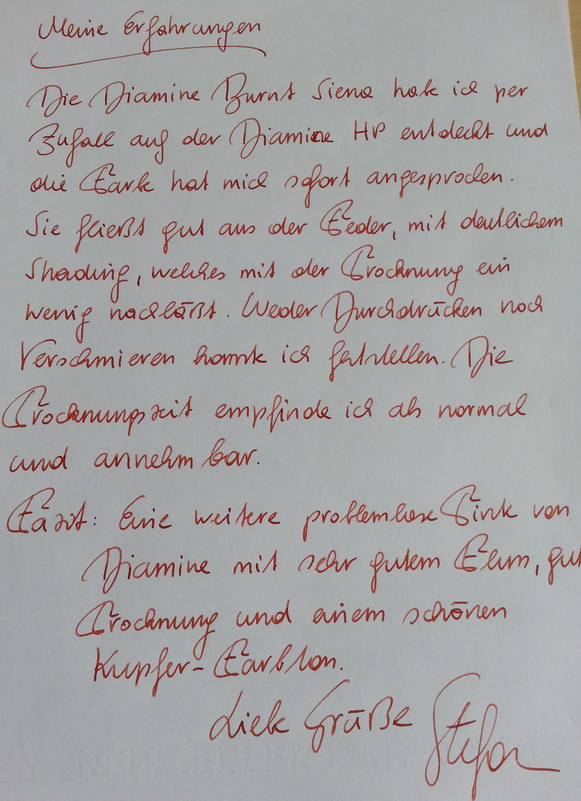 Meine Erfahrungen
Die Diamine Burnt Siena habe ich per
Zufall auf der Diamine HP entdeckt und
die Farbe hat mich sofort angesprochen.
Sie fließt gut aus der Feder, mit deutlichem
Shading, welches mit der Trocknung ein
wenig nachläßt. Weder Durchdrücken noch
Verschmieren konnte ich feststellen. Die
Trocknungszeit empfinde ich als normal
und annehmbar.
Fazit: Eine weitere problemlose Tinte von
Diamine mit sehr gutem Fluss, gut
Trocknung und einem schönen
Kupfer-Farbton.
Liebe Grüße Stefan